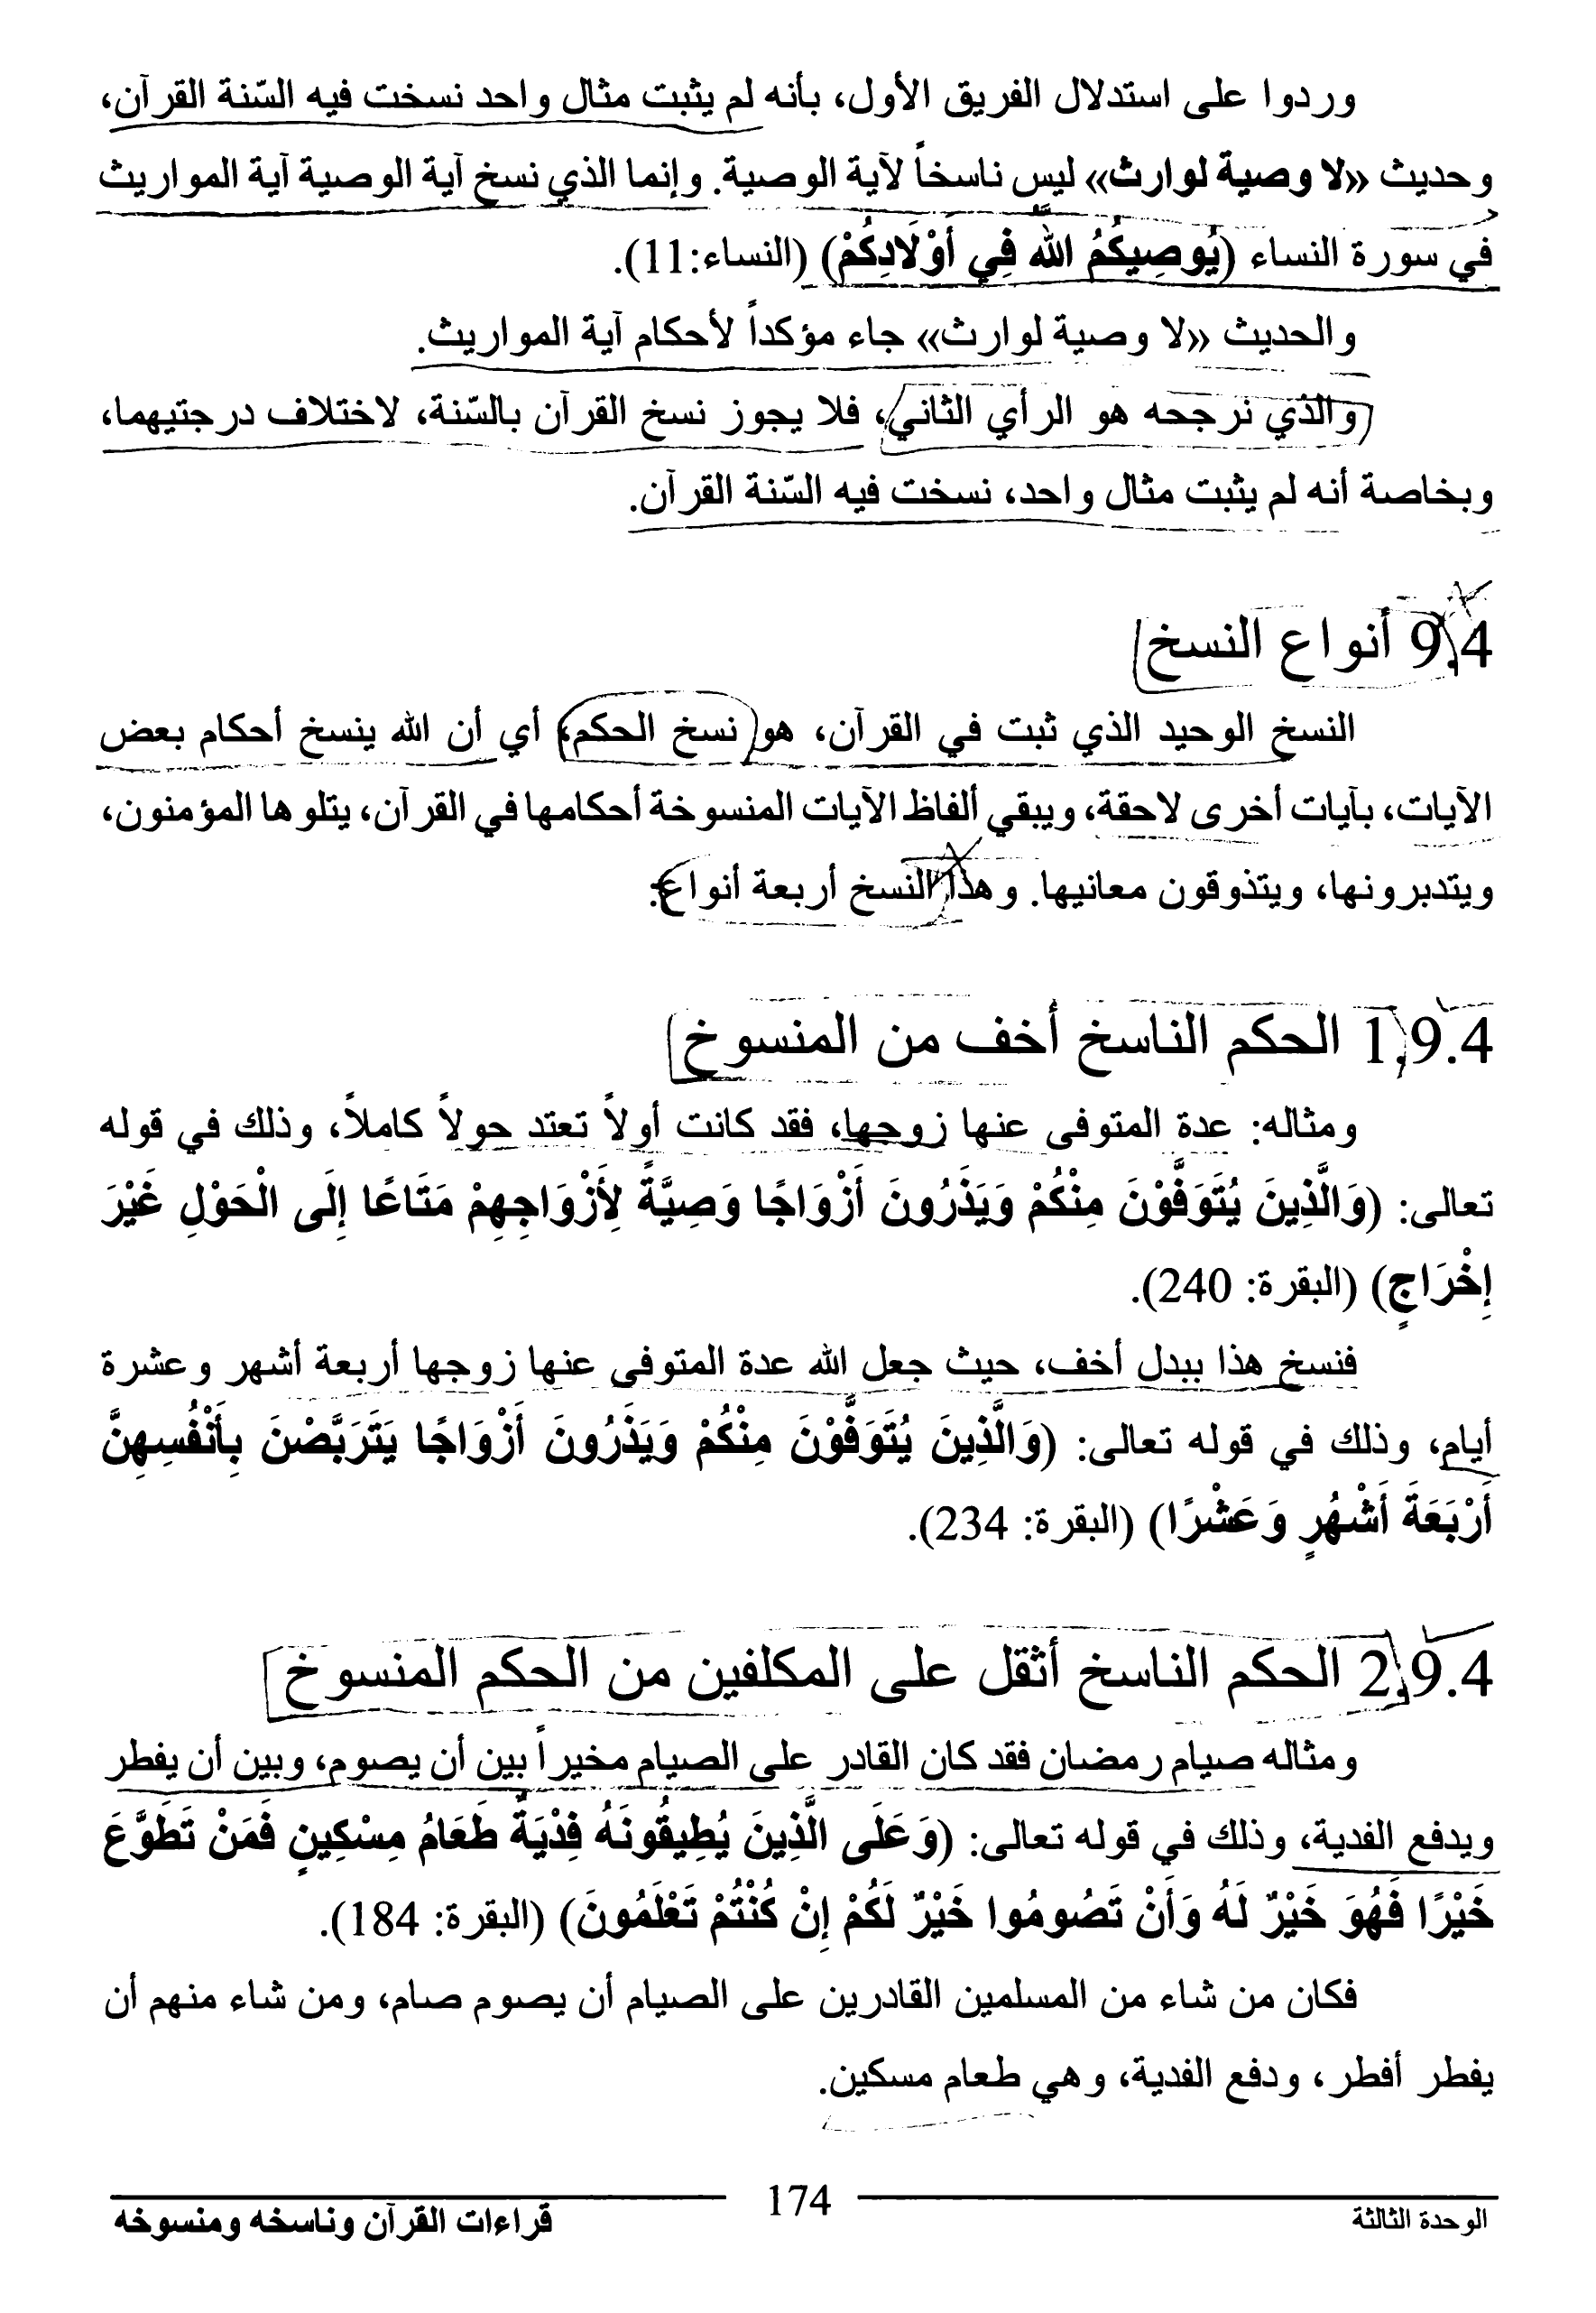 وردوا على استدلال الفريق الأول، بأنه لم يثبت مثال واحد نسخت فيه السّنة القرآن،
وحديث «لا وصية لوارث» ليس ناسخاً لآية الوصية. وإنما الذي نسخ آية الوصية آية المواريث
في سورة النساء (يُوصِيكُمُ اللَّه فِي أَوْلَادِكُمْ) (النساء:11).
والحديث «لا وصية لوارث» جاء مؤكداً لأحكام آية المواريث.
والذي نرجحه هو الرأي الثاني، فلا يجوز نسخ القرآن بالسّنة، لاختلاف درجتيهما،
وبخاصة أنه لم يثبت مثال واحد، نسخت فيه السّنة القرآن.
9.4 أنواع النسخ
النسخ الوحيد الذي ثبت في القرآن، هو نسخ الحكم، أي أن الله ينسخ أحكام بعض
الآيات، بآيات أخرى لاحقة، ويبقي ألفاظ الآيات المنسوخة أحكامها في القرآن، يتلوها المؤمنون،
ويتدبرونها، ويتذوقون معانيها. وهذا النسخ أربعة أنواع:
1.9.4 الحكم الناسخ أخف من المنسوخ
ومثاله: عدة المتوفى عنها زوجها، فقد كانت أولاً تعتد حولاً كاملاً، وذلك في قوله
تعالى: (وَالَّذِينَ يُتَوَفَّوْنَ مِنْكُمْ وَيَذَرُونَ أَزْوَاجًا وَصِيَّةً لِأَزْوَاجِهِمْ مَتَاعًا إِلَى الْحَوْلِ غَيْرَ
إِخْرَاجٍ) (البقرة: 240).
فنسخ هذا ببدل أخف، حيث جعل الله عدة المتوفى عنها زوجها أربعة أشهر وعشرة
أيام، وذلك في قوله تعالى: (وَالَّذِينَ يُتَوَفَّوْنَ مِنْكُمْ وَيَذَرُونَ أَزْوَاجًا يَتَرَبَّصْنَ بِأَنْفُسِهِنَّ
أَرْبَعَةَ أَشْهُرٍ وَعَشْرًا) (البقرة: 234).
2.9.4 الحكم الناسخ أثقل على المكلفين من الحكم المنسوخ
ومثاله صيام رمضان فقد كان القادر على الصيام مخيراً بين أن يصوم، وبين أن يفطر
ويدفع الفدية، وذلك في قوله تعالى: (وَعَلَى الَّذِينَ يُطِيقُونَهُ فِدْيَةٌ طَعَامُ مِسْكِينٍ فَمَنْ تَطَوَّعَ
خَيْرًا فَهُوَ خَيْرٌ لَهُ وَأَنْ تَصُومُوا خَيْرٌ لَكُمْ إِنْ كُنْتُمْ تَعْلَمُونَ) (البقرة: 184).
فكان من شاء من المسلمين القادرين على الصيام أن يصوم صام، ومن شاء منهم أن
يفطر أفطر، ودفع الفدية، وهي طعام مسكين.
الوحدة الثالثة 174 قراءات القرآن وناسخه ومنسوخه